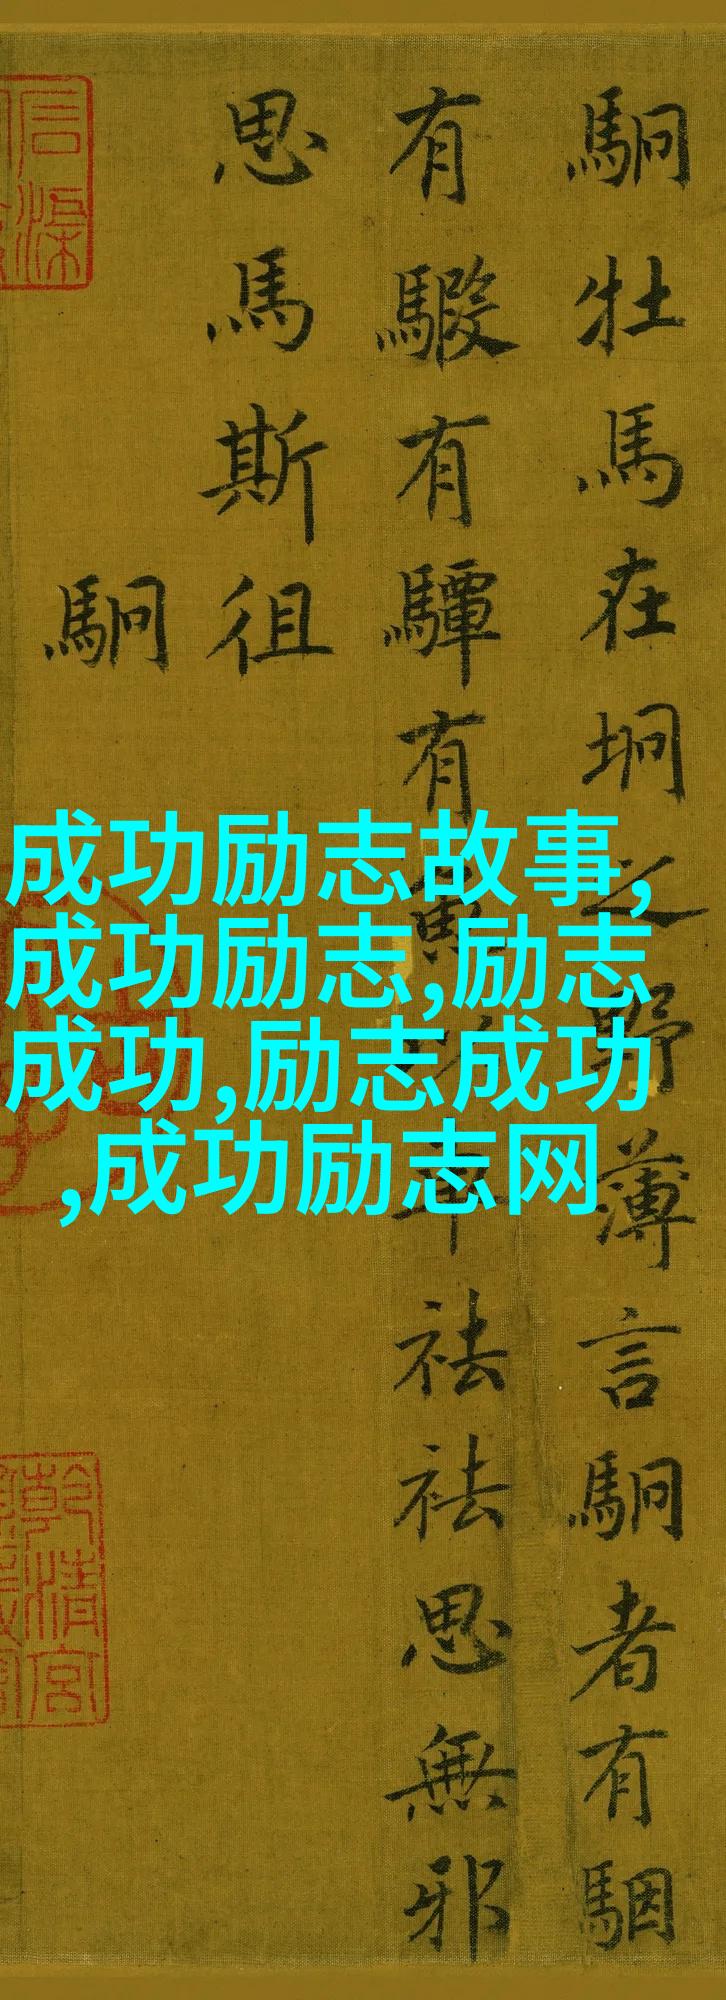 駉牡馬在坰之野薄言駉者有駰
有騢有驔有
車祛祛思無邪
思馬斯徂
駉
成功励志故事,
成功励志,励志
成功,励志成功
,成功励志网
乾清宮